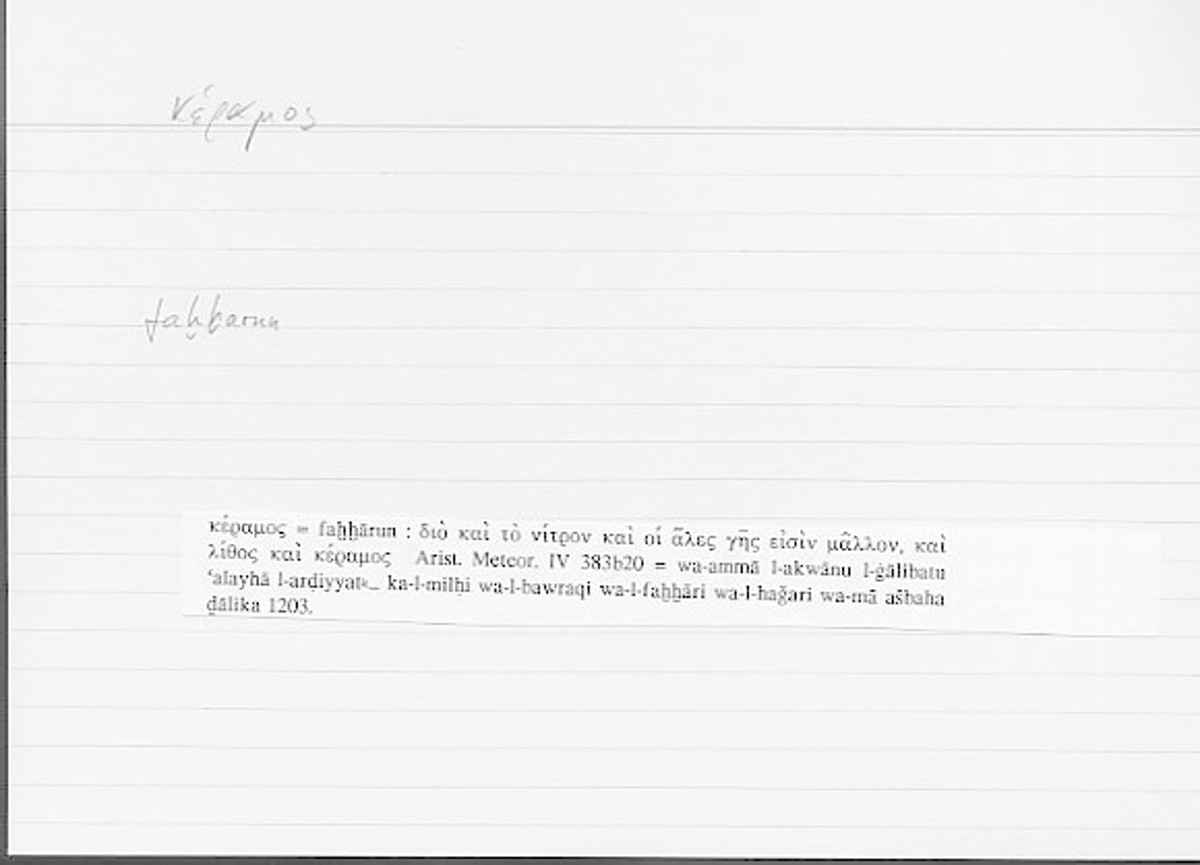 κέραμος
faḫḫarun
κέραμος = faḫḫārun : διὸ καὶ τὸ νίτρον καὶ οἱ ἅλες γῆς εἰσὶν μᾶλλον, καὶ
λίθος καὶ κέραμος Arist. Meteor. IV 383b20 = wa-ammā l-akwānu l-ġālibatu
ʿalayhā l-arḍiyyatu ka-l-milḥi wa-l-bawraqi wa-l-faḫḫāri wa-l-ḥaǧari wa-mā ašbaha
ḏālika 1203.